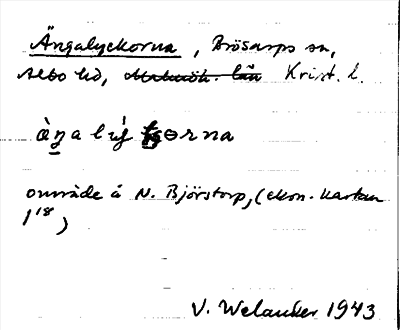 Ängalyckorna, Brösarps sn,
Albo hd, Malmöh. län Krist. l.
område å N. Björstorp, (ekon. kartan
1 18)
V. Welander 1943